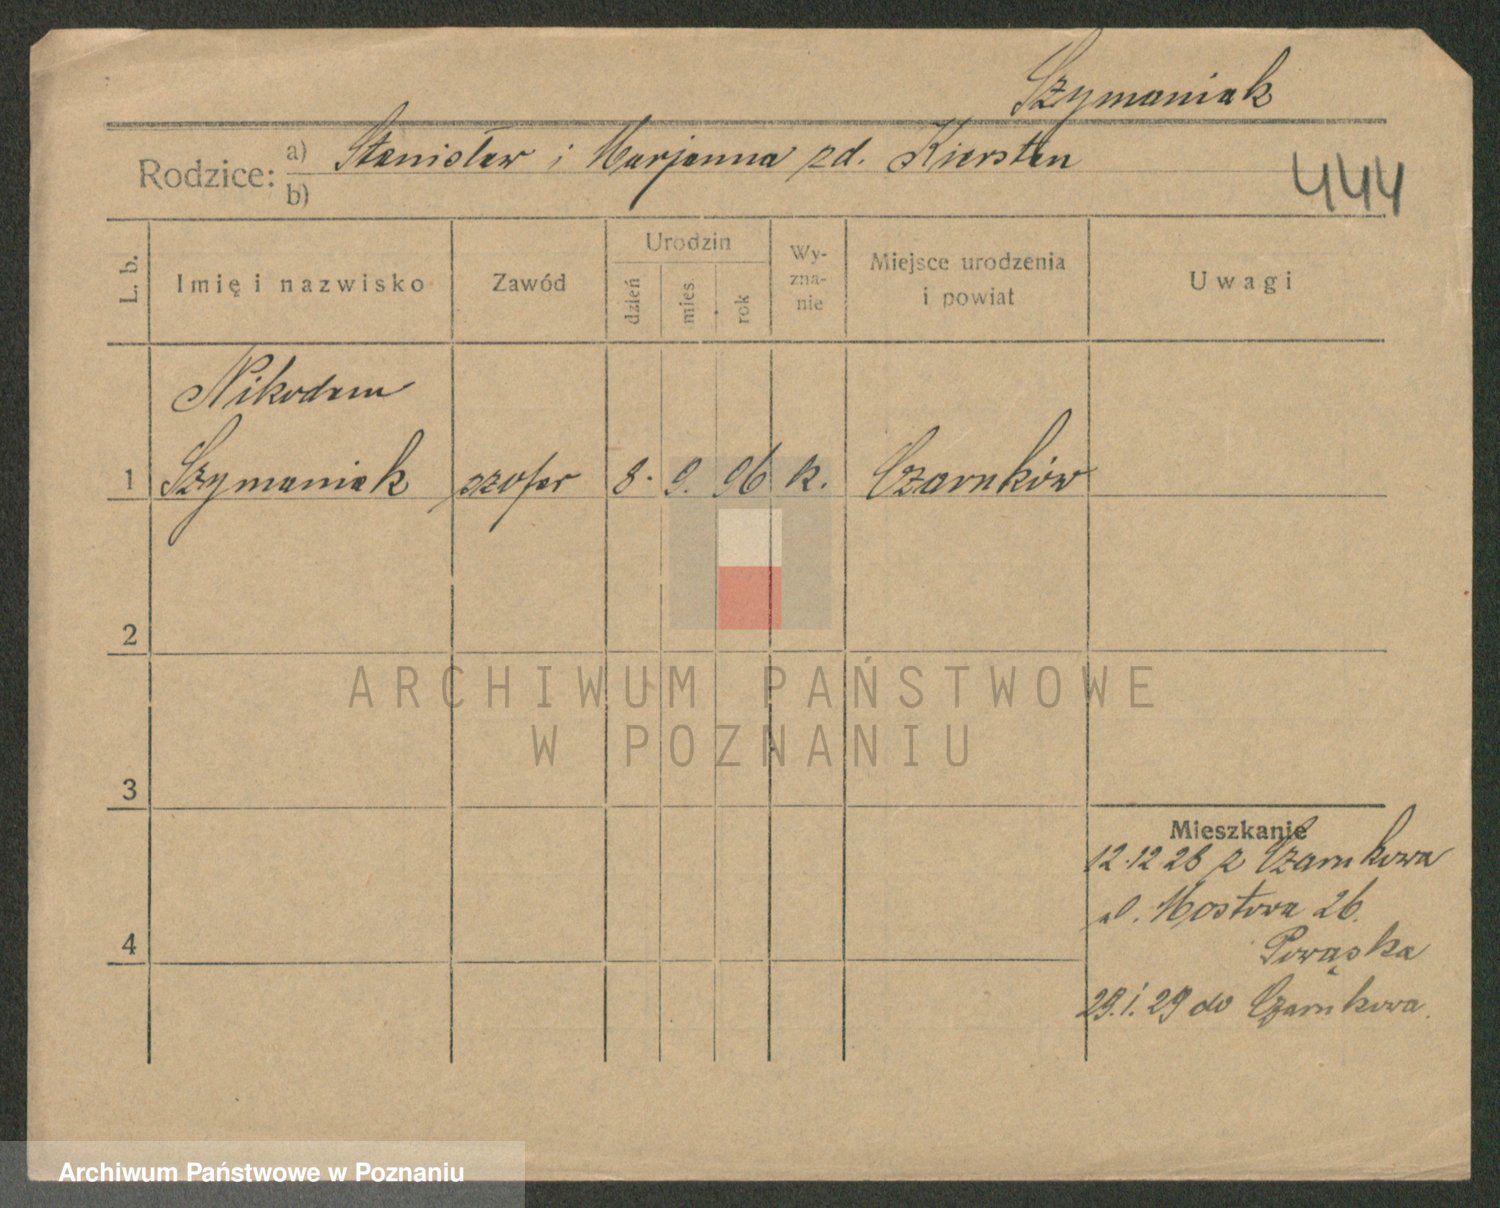 Szymaniak
Rodzice: a) Stanisław i Marjanna zd. Kiersten
b)
444
L. b.
Imię i nazwisko
Zawód
Urodzin
dzień
mies.
rok
Wy-
zna-
nie
Miejsce urodzenia
i powiat
Uwagi
Nikodem
1 Szymaniak szofer 8. 9. 96 k. Czarnków
2
3
4
Mieszkanie
12.12 28 z Czarnkowa
ul. Mostowa 26.
29.1.29 do Czarnkowa.
ARCHIWUM PAŃSTWOWE
W POZNANIU
Archiwum Państwowe w Poznaniu